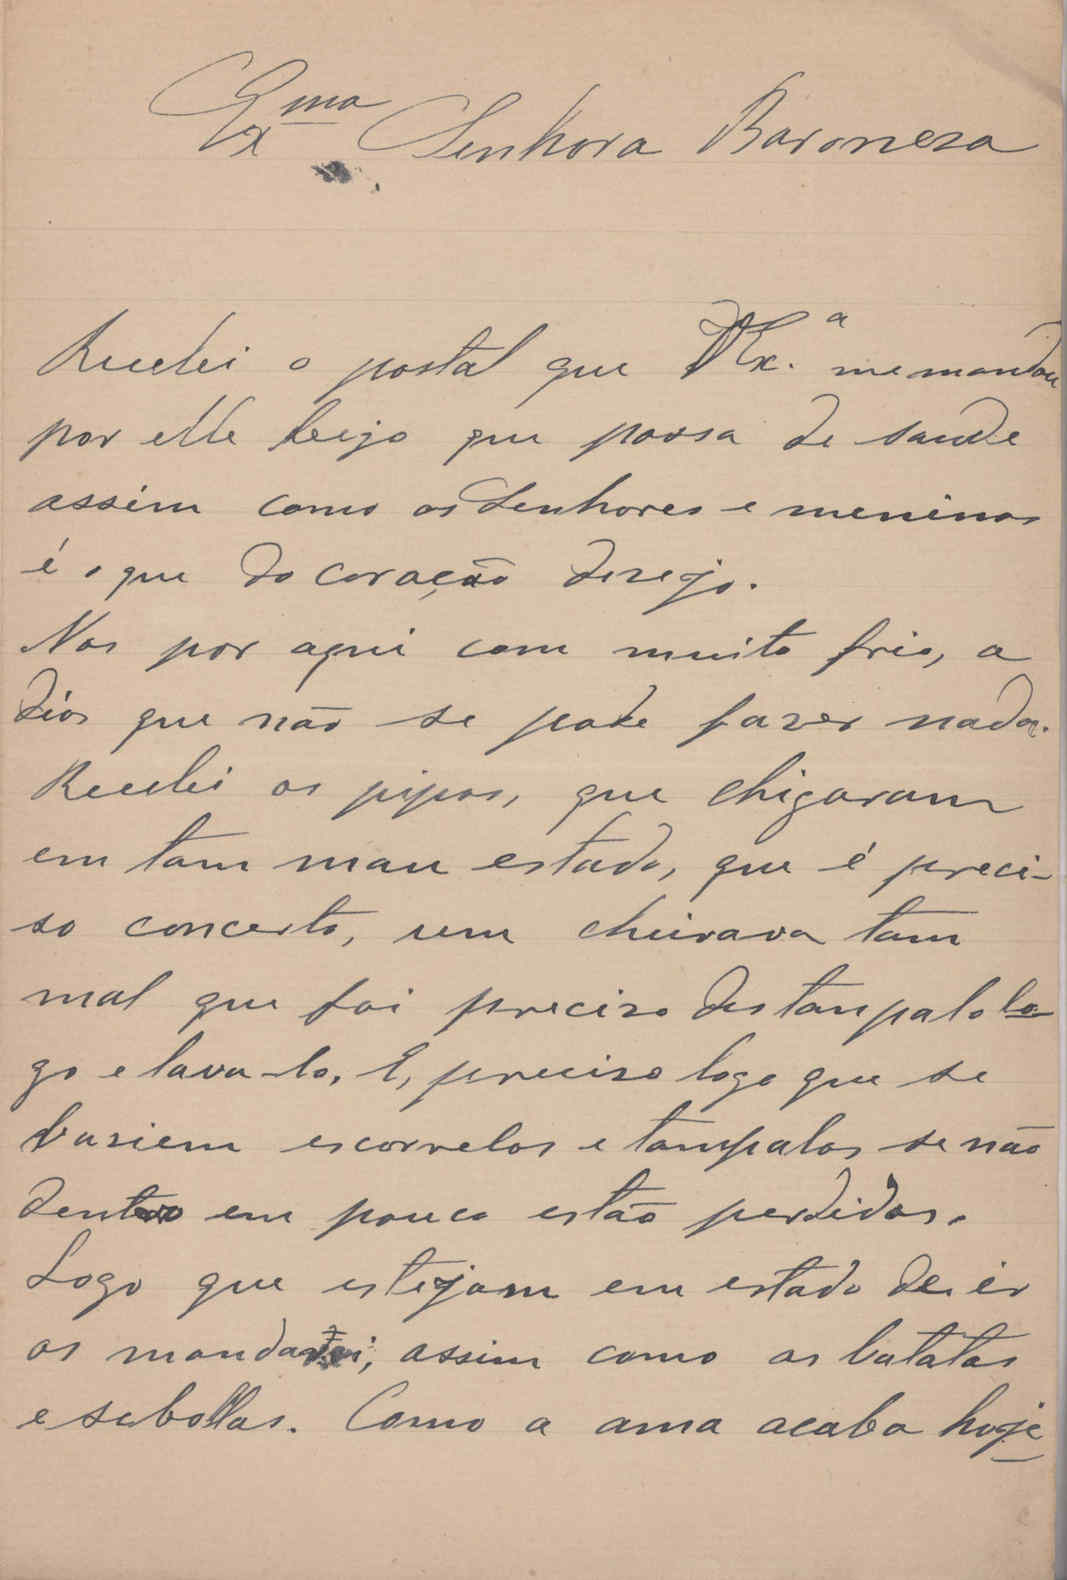 Exma Senhora Baroneza
Recebi o postal que V Ex.a me mandou
por elle beijo que passa de saude
assim como os Senhores e meninos
é o que do coração dezejo.
Nos por aqui com muito frio, a
dias que não se pode fazer nada.
Recebi os pipos, que chigaram
em tam mau estado, que é preci-
so concerto, um cheirava tam
mal que foi precizo destanpalo lo-
go e lava-lo. É, precizo logo que se
vasiem escorrelos e tampalos se não
dentro em pouco estão perdidos.
Logo que estejam em estado de ir
os mandarei, assim como as batatas
e sebollas. Como a ama acaba hoje